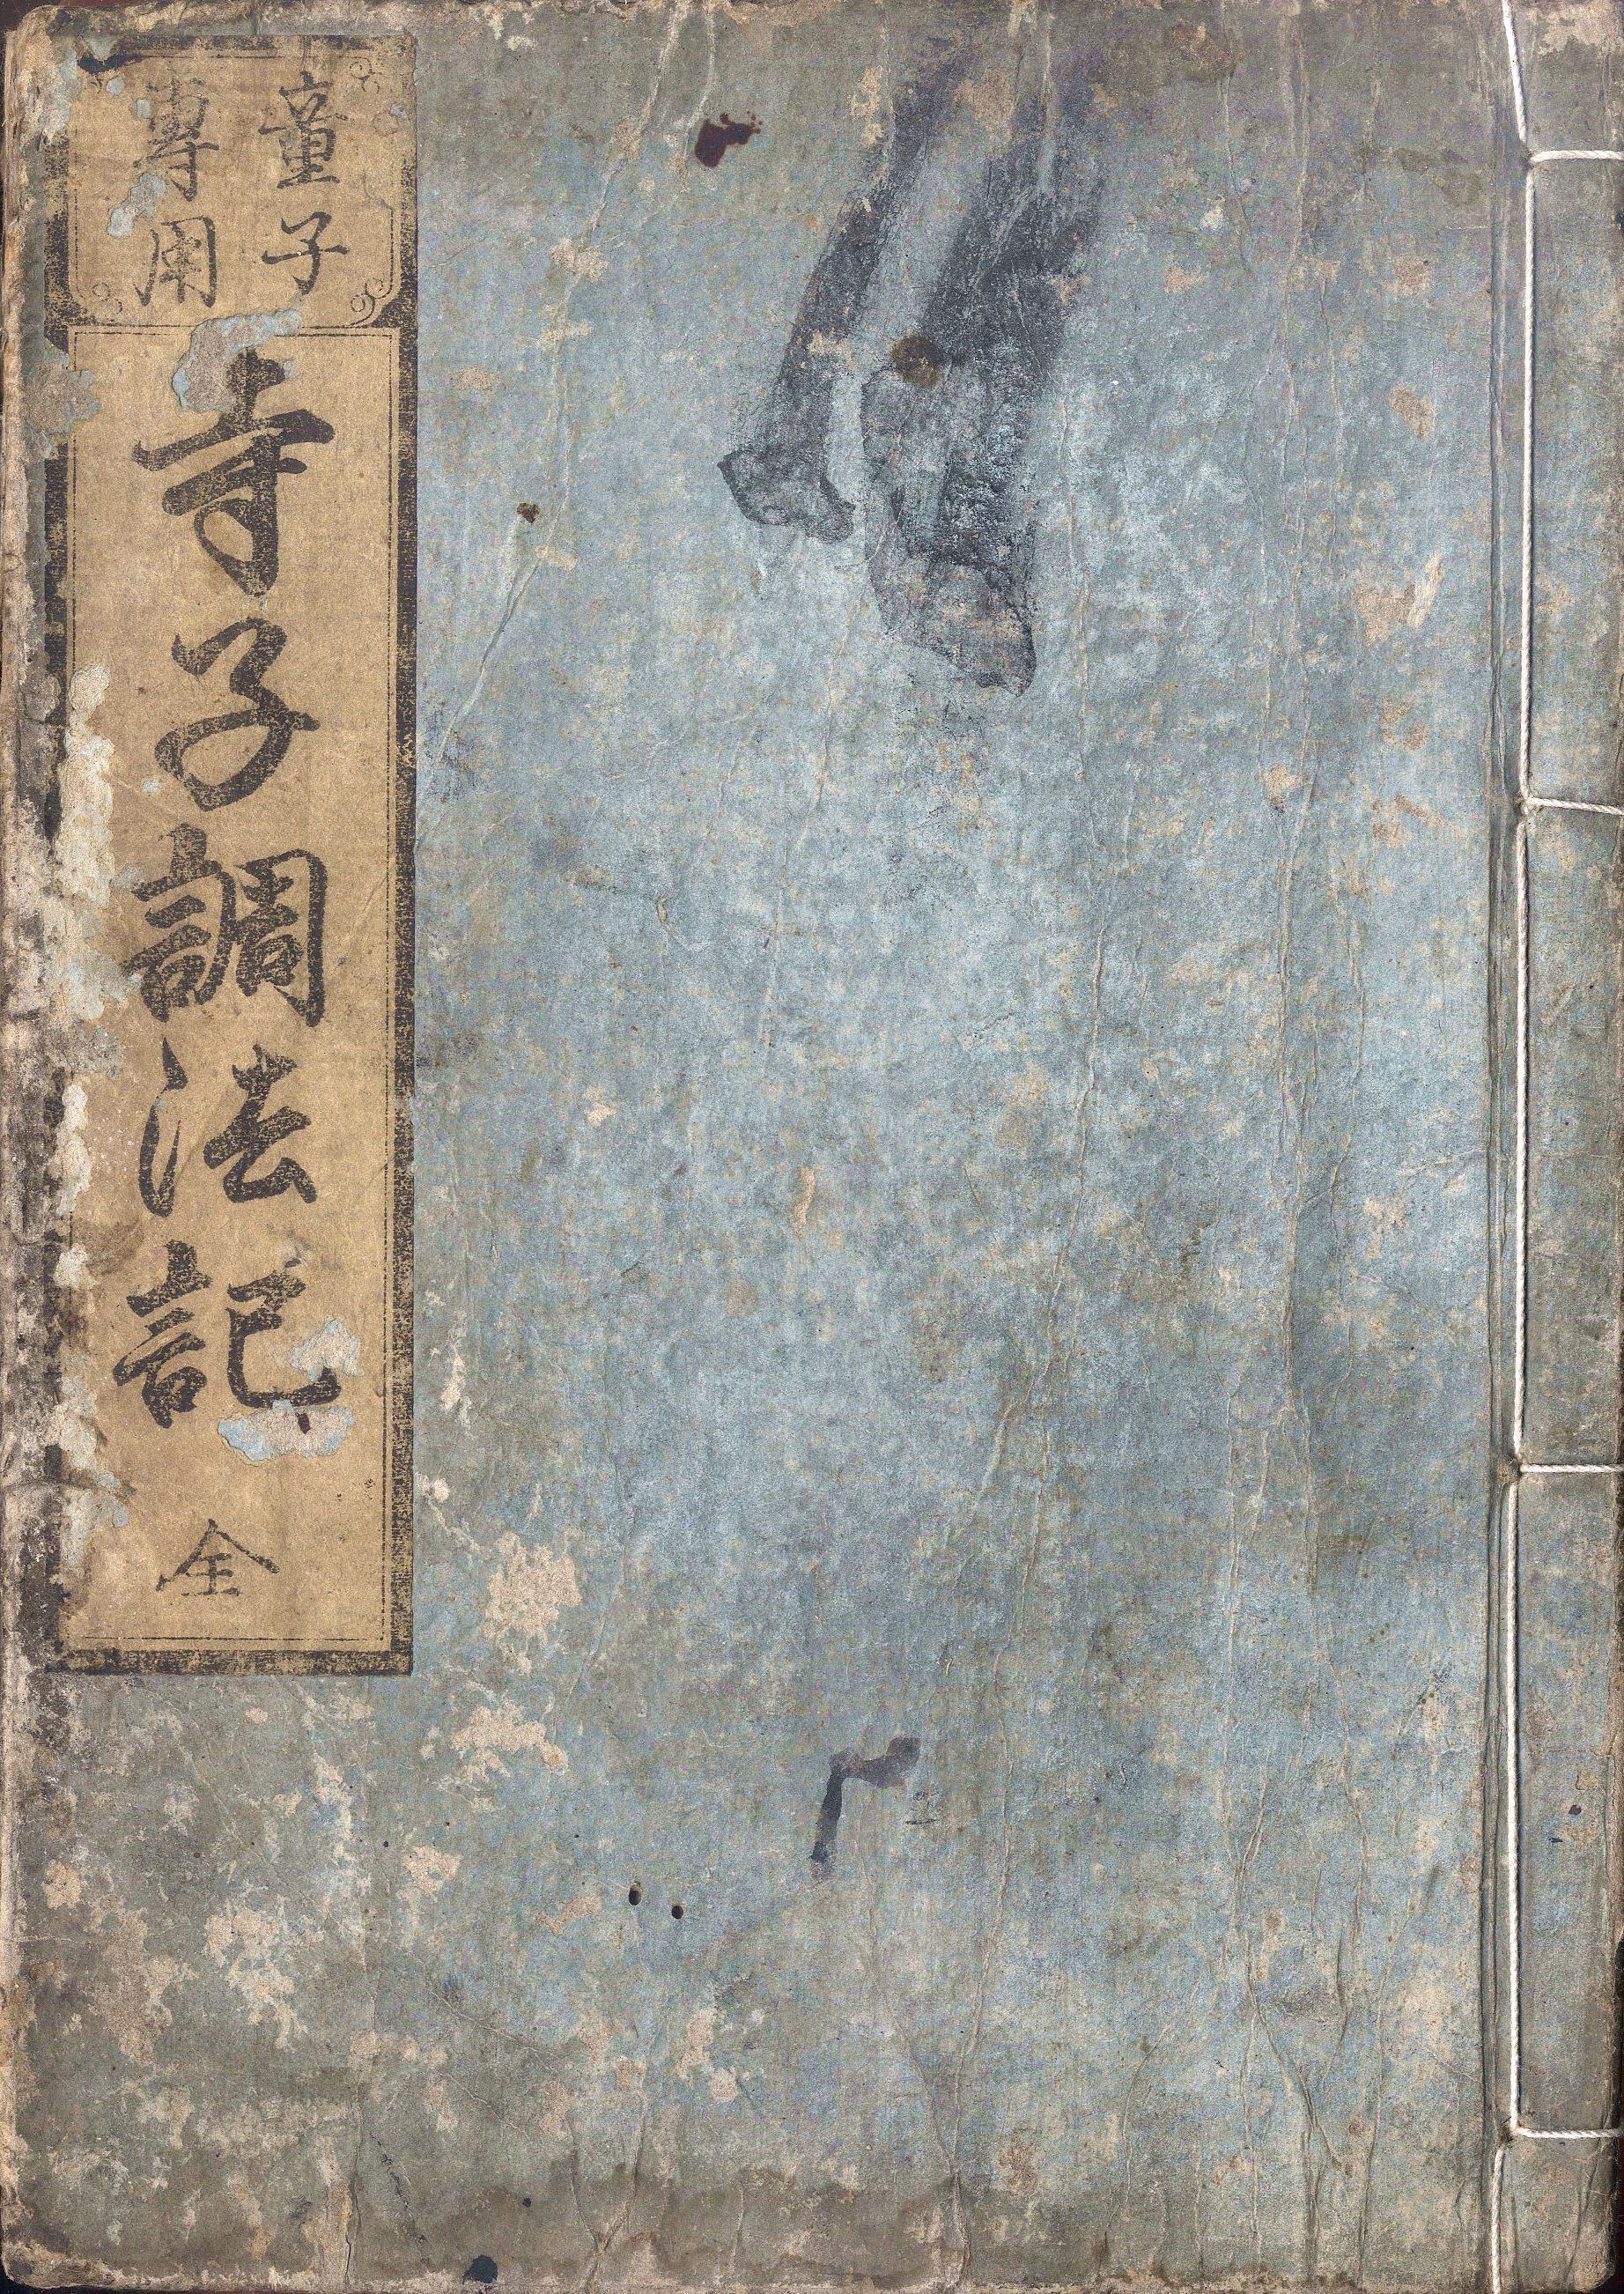 童子
專用
寺子調法記
全